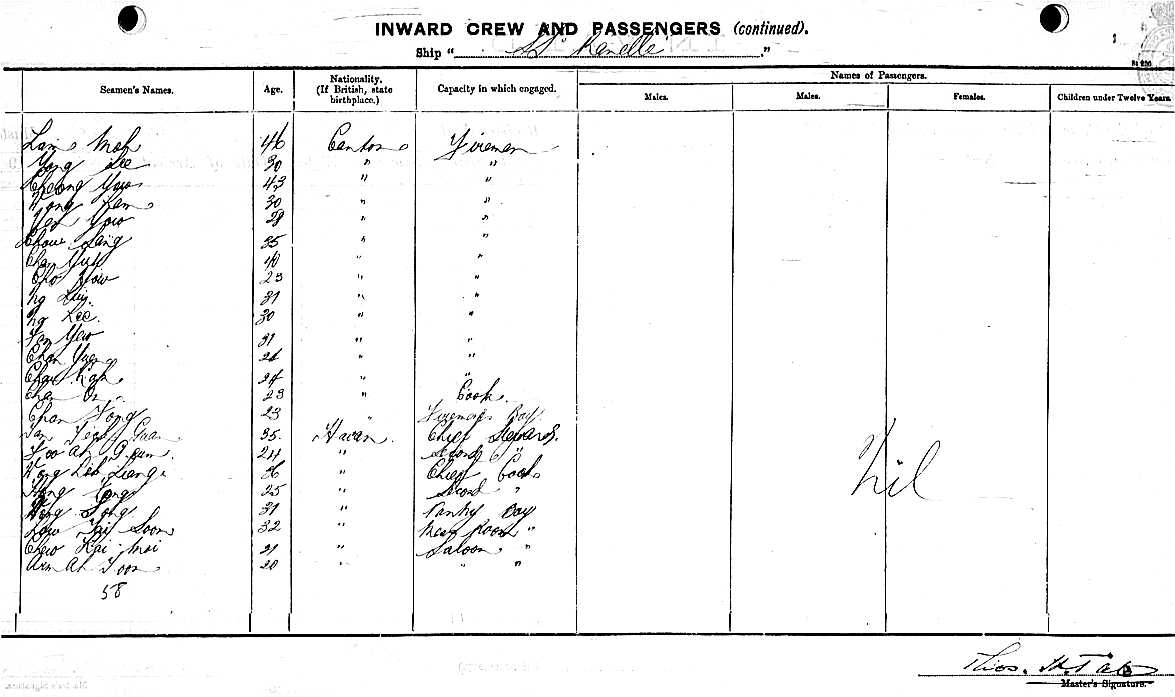 INWARD CREW AND PASSENGERS (continued).
Ship " Ranelle ."
Seamen's Names. Age. Nationality. (If British, state birthplace.) Capacity in which engaged. Names of Passengers.
Males. Males. Females. Children under Twelve Years
Lam Moh 46 Canton Firemen
Yong Lee 30 " "
Cheong Yow 43 " "
Wong Lam 30 " "
Yow 28 " "
Chow Lang 35 " "
Chan 40 " "
Cho Yow 23 " "
Ng 31 " "
Ng Lee. 30 " "
Yew 31 " "
Chan " "
Chau 24 " "
Chan 23 " Cook
Chan Fong 23 " Firemens Boy
35. Chief Steward
Foo Ah 24 " Second "
Wong Liang 36 " Chief Cook
Hong 25 " Second "
Wong Song 31 " Pantry Boy
Low Tai Soon 32 " Mess Room "
Chew Kai 21 " Saloon "
Ah 20 " " "
Nil
58
Thos. H. Tate
Master's Signature.